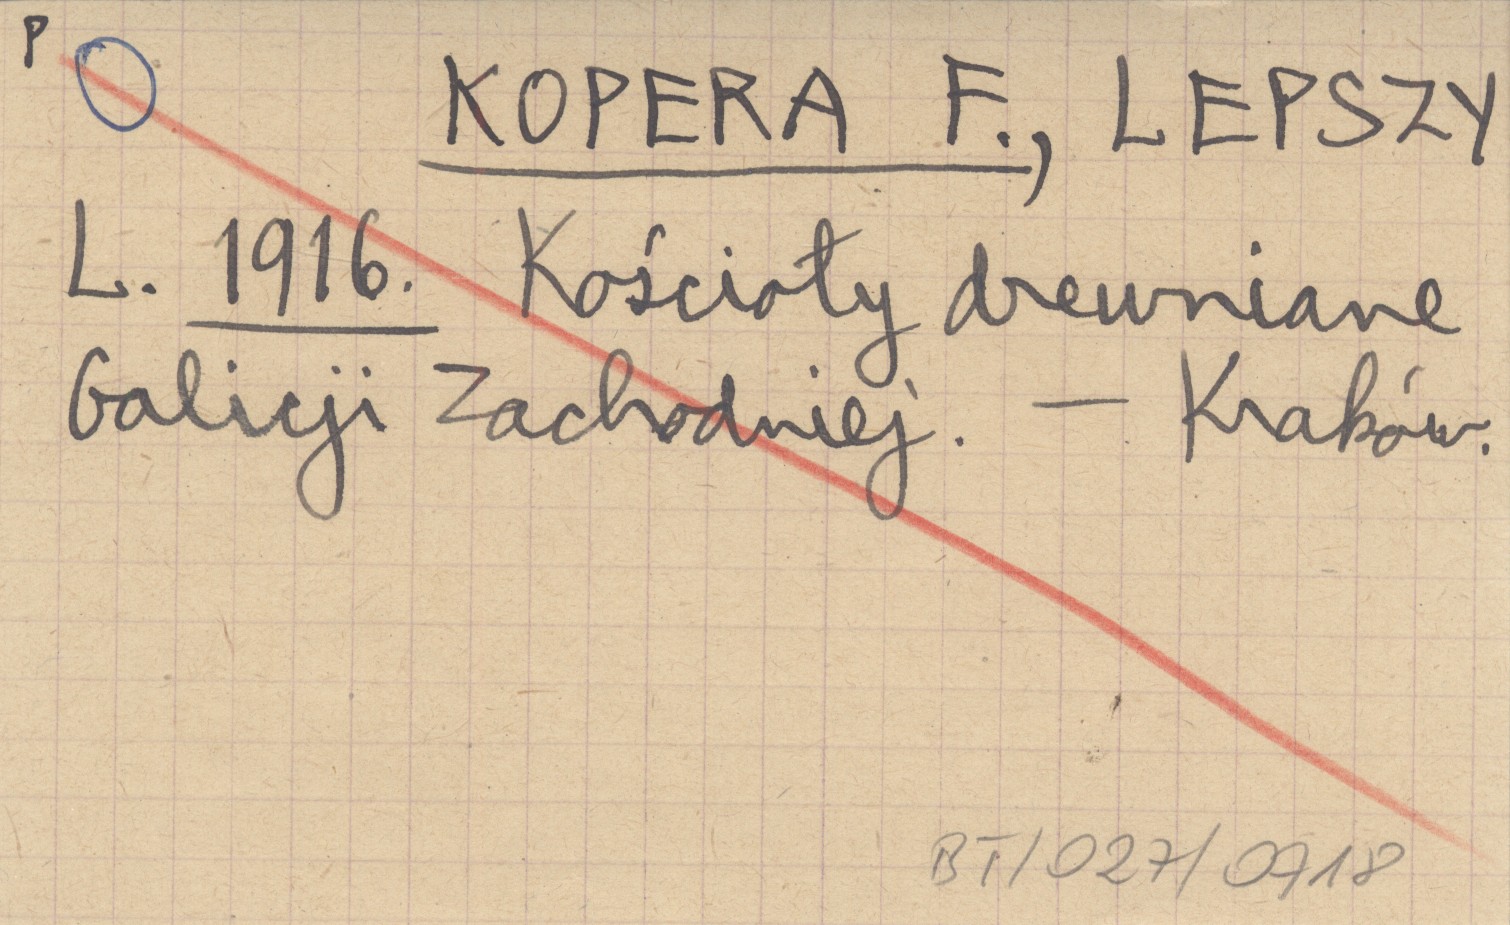 P
KOPERA F., LEPSZY
L. 1916. Kościoły drewniane
Galicji Zachodniej. — Kraków.
BT/027/0718